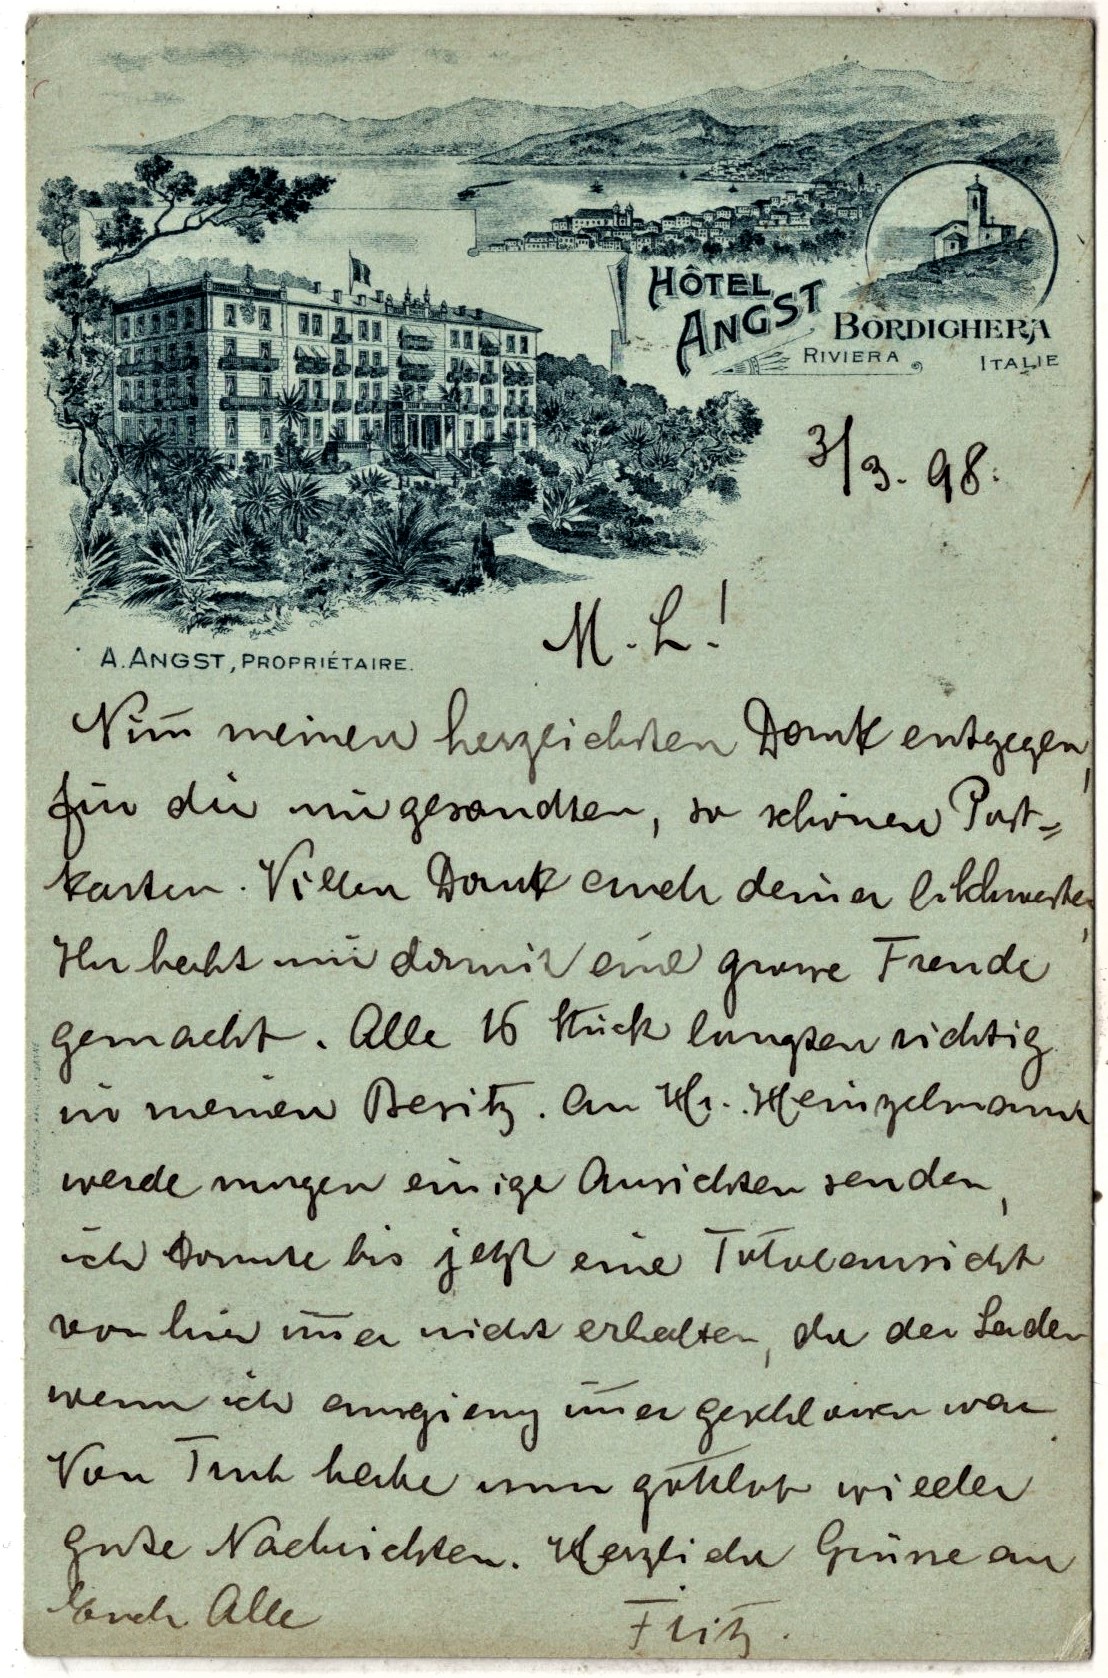 HÔTEL
ANGST
BORDIGHERA
RIVIERA
ITALIE
3/3. 98.
A. ANGST, PROPRIÉTAIRE.
M. L.!
Nim̄ meinen herzlichsten Dank entgegen,
für die mir gesandten, so schönen Post=
karten. Vielen Dank auch deiner
Ihr habt mir damit eine grosse Freude
gemacht. Alle 16 Stück langten richtig
in meinen Besitz. An Hr. Heinzelmann
werde morgen einige Ansichten senden,
ich konnte bis jetzt eine Totalansicht
von hier im̄er nicht erhalten, da der Laden
wenn ich ausgieng im̄er geschlossen war
Von Trub habe nun gottlob wieder
gute Nachrichten. Herzliche Grüsse an
Euch Alle
Fritz.